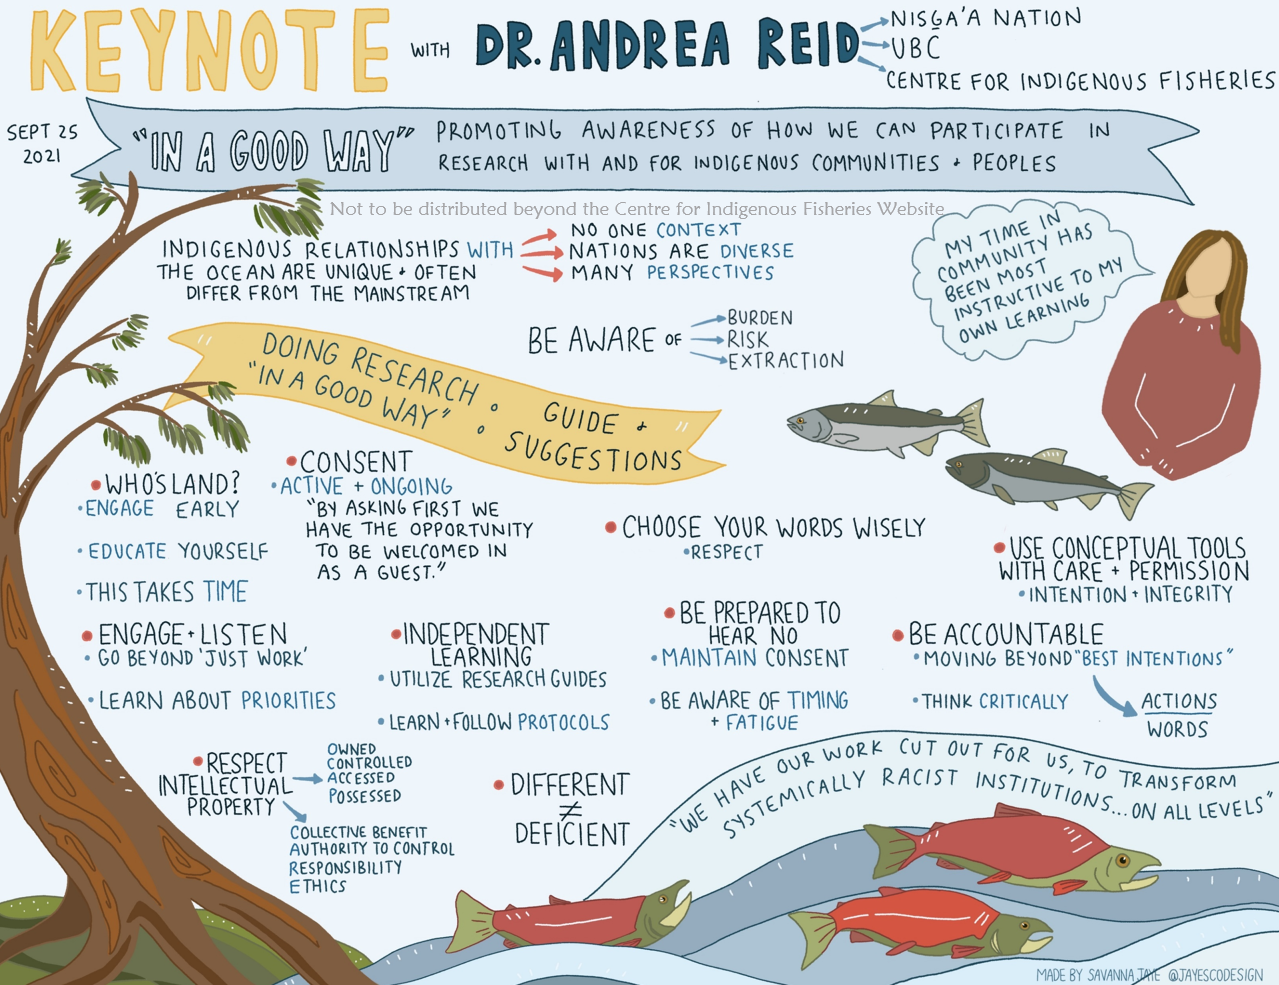 KEYNOTE WITH DR. ANDREA REID
NISGA'A NATION
UBC
CENTRE FOR INDIGENOUS FISHERIES
SEPT 25
2021
"IN A GOOD WAY" PROMOTING AWARENESS OF HOW WE CAN PARTICIPATE IN
RESEARCH WITH AND FOR INDIGENOUS COMMUNITIES + PEOPLES
Not to be distributed beyond the Centre for Indigenous Fisheries Website
INDIGENOUS RELATIONSHIPS WITH
THE OCEAN ARE UNIQUE + OFTEN
DIFFER FROM THE MAINSTREAM
NO ONE CONTEXT
NATIONS ARE DIVERSE
MANY PERSPECTIVES
MY TIME IN
COMMUNITY HAS
BEEN MOST
INSTRUCTIVE TO MY
OWN LEARNING
BE AWARE OF
BURDEN
RISK
EXTRACTION
DOING RESEARCH :
"IN A GOOD WAY"
GUIDE +
SUGGESTIONS
• WHO'S LAND?
• ENGAGE EARLY
• EDUCATE YOURSELF
• THIS TAKES TIME
• CONSENT
• ACTIVE + ONGOING
"BY ASKING FIRST WE
HAVE THE OPPORTUNITY
TO BE WELCOMED IN
AS A GUEST."
• CHOOSE YOUR WORDS WISELY
• RESPECT
• USE CONCEPTUAL TOOLS
WITH CARE + PERMISSION
• INTENTION + INTEGRITY
• ENGAGE + LISTEN
• GO BEYOND 'JUST WORK'
• LEARN ABOUT PRIORITIES
• INDEPENDENT
LEARNING
• UTILIZE RESEARCH GUIDES
• LEARN + FOLLOW PROTOCOLS
• BE PREPARED TO
HEAR NO
• MAINTAIN CONSENT
• BE AWARE OF TIMING
+ FATIGUE
• BE ACCOUNTABLE
• MOVING BEYOND "BEST INTENTIONS"
• THINK CRITICALLY
ACTIONS
WORDS
• RESPECT
INTELLECTUAL
PROPERTY
OWNED
CONTROLLED
ACCESSED
POSSESSED
COLLECTIVE BENEFIT
AUTHORITY TO CONTROL
RESPONSIBILITY
ETHICS
• DIFFERENT
≠
DEFICIENT
"WE HAVE OUR WORK CUT OUT FOR US, TO TRANSFORM
SYSTEMICALLY RACIST INSTITUTIONS... ON ALL LEVELS"
MADE BY SAVANNA JAYE @JAYESCODESIGN